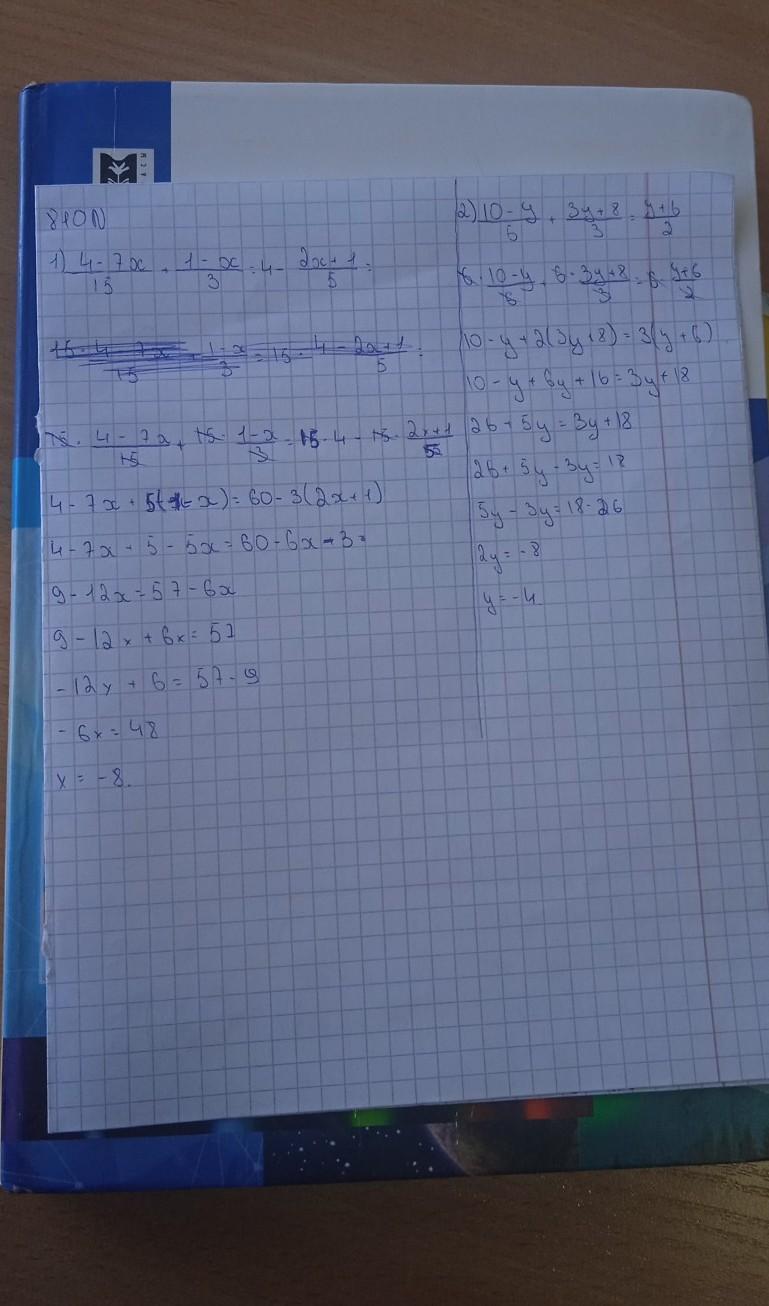 810N
1) (4-7x)/15 + (1-x)/3 = 4 - (2x+1)/5 =
15 · (4-7x)/15 + 15 · (1-x)/3 = 15 · 4 - 15 · (2x+1)/5
4-7x + 5(1-x) = 60-3(2x+1)
4-7x + 5 - 5x = 60-6x-3 =
9-12x = 57-6x
9-12x + 6x = 57
-12x + 6 = 57-9
-6x = 48
x = -8.
2) (10-y)/6 + (3y+8)/3 = (y+6)/2
6 · (10-y)/6 + 6 · (3y+8)/3 = 6 · (y+6)/2
10-y+2(3y+8) = 3(y+6)
10-y+6y+16 = 3y+18
26+5y = 3y+18
26+5y-3y = 18
5y-3y = 18-26
2y = -8
y = -4